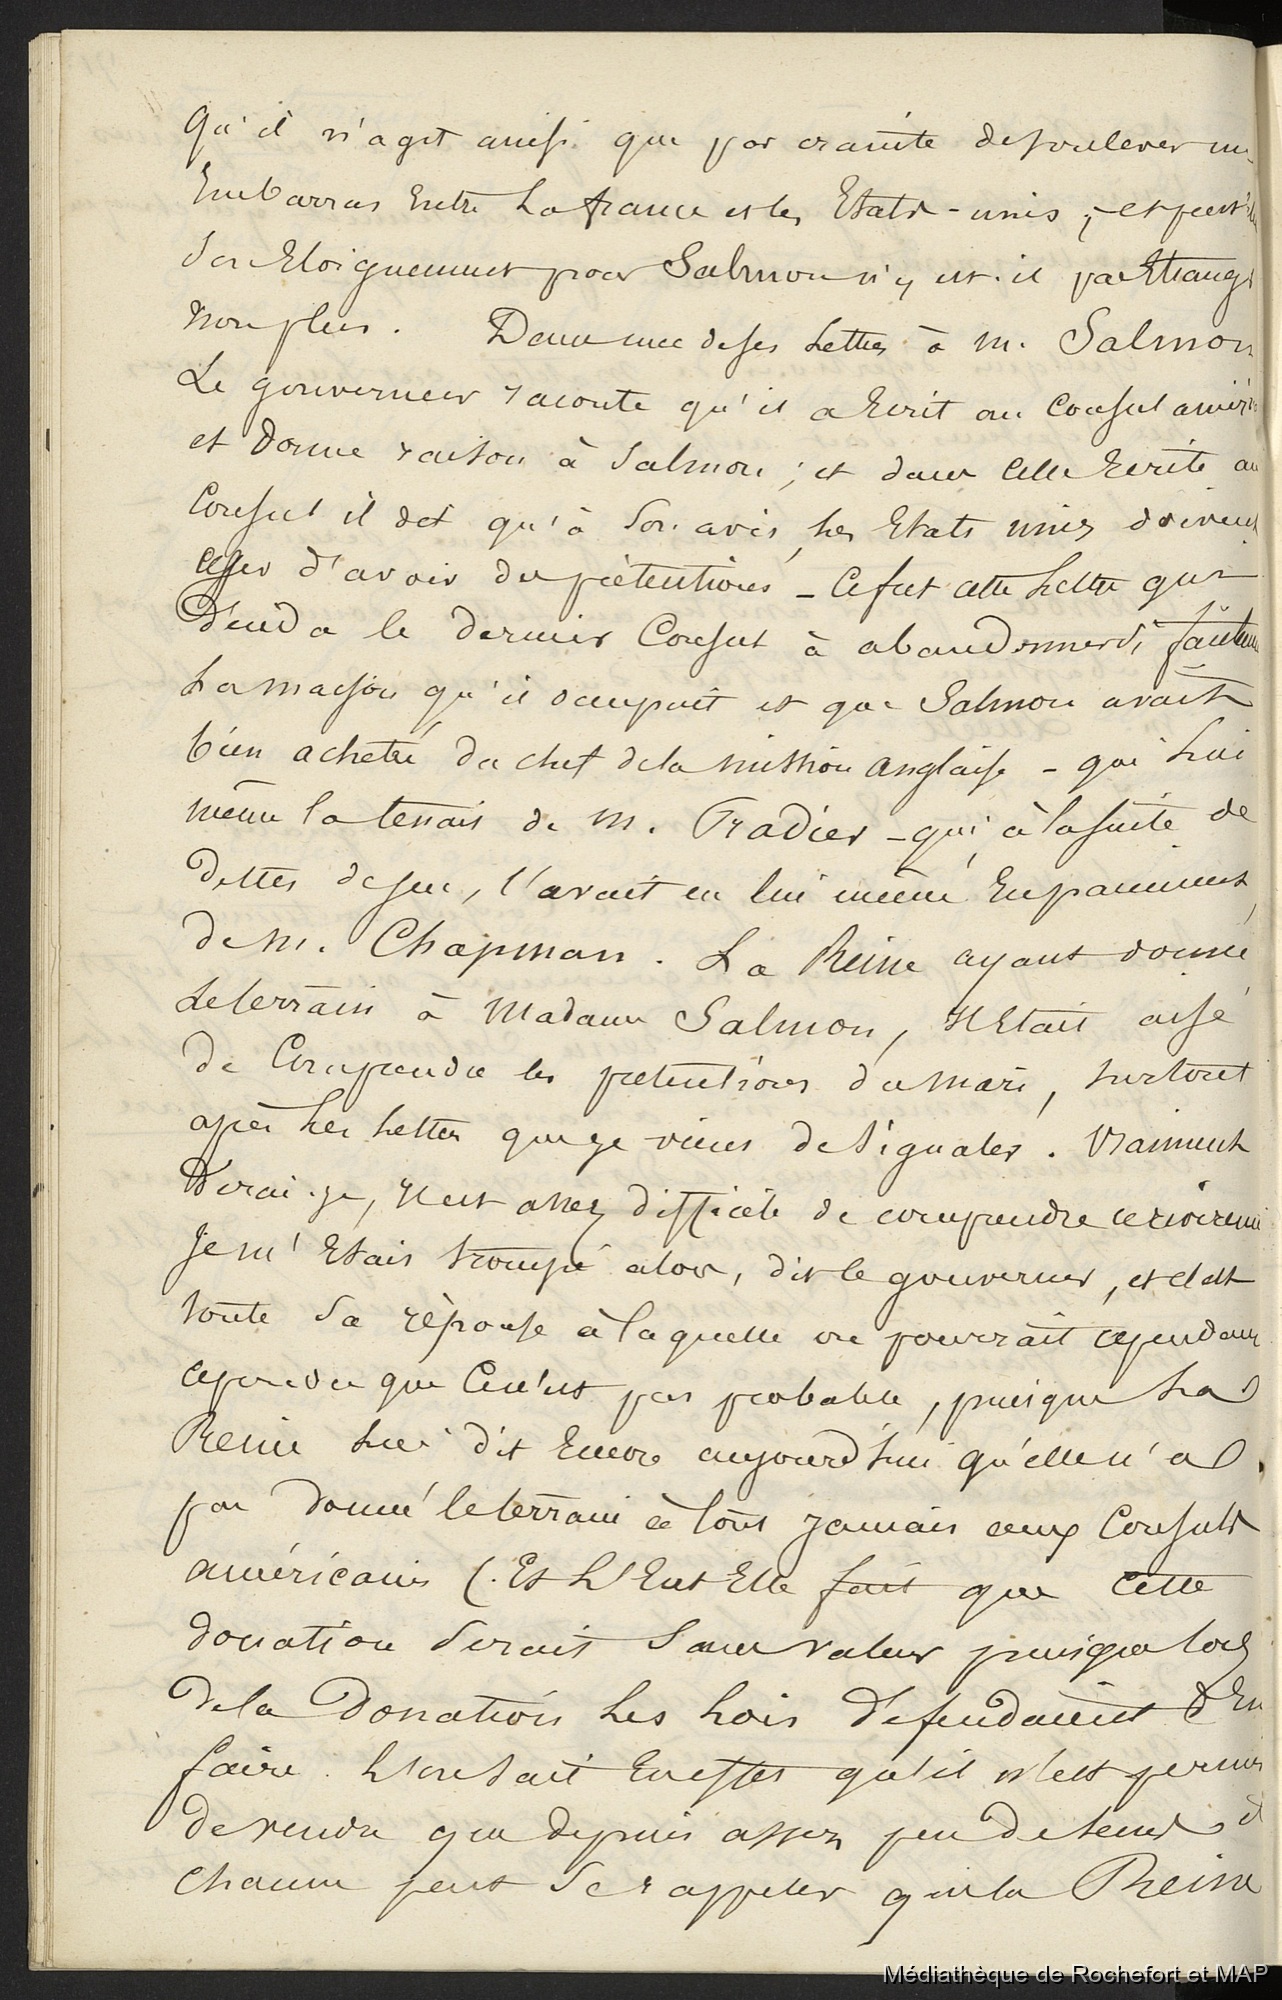 qu'il n'agit ainsi que par crainte de soulever un
Embarras Entre La france et les Etats-unis ; et peut
son Eloignement pour Salmon n'y est-il pas Etranger
non plus. Dans une de ses Lettres à M. Salmon
Le gouverneur raconte qu'il a Ecrit au Consul améric
et donne raison à Salmon ; et dans celle Ecrite au
Consul il dit qu'à son avis, les Etats unis doivent
cesser d'avoir des prétentions - Ce fut cette Lettre qui
décida le dernier Consul à abandonner
La maison qu'il occupait et que Salmon avait
bien acheté du chef de la mission anglaise - qui Lui
même la tenait de M. Pradier - qui, à la suite de
dettes de jeu, l'avait eu lui même En paiement,
de M. Chapman. La Reine ayant donné
Le terrain à Madame Salmon, il Etait aisé
de Comprendre les prétentions du mari, surtout
après Les Lettres que je viens de signaler. Vraiment
dirai-je, il est assez difficile de comprendre ce revirement
Je m'Etais trompé alors, dit le gouverneur, et c'est
toute sa réponse à laquelle on pourrait cependant
répondre que Ce n'est pas probable, puisque La
Reine Lui dit Encore aujourd'hui qu'elle n'a
pas donné le terrain à tout jamais aux Consuls
américains (. Et L'Eut Elle fait que cette
donation serait sans valeur puisque lors
de la Donation Les Lois défendaient d'En
faire. L'on sait En effet qu'il n'est permis
de vendre que depuis assez peu de tems et
chacun peut se rappeler que la Reine
Médiathèque de Rochefort et MAP